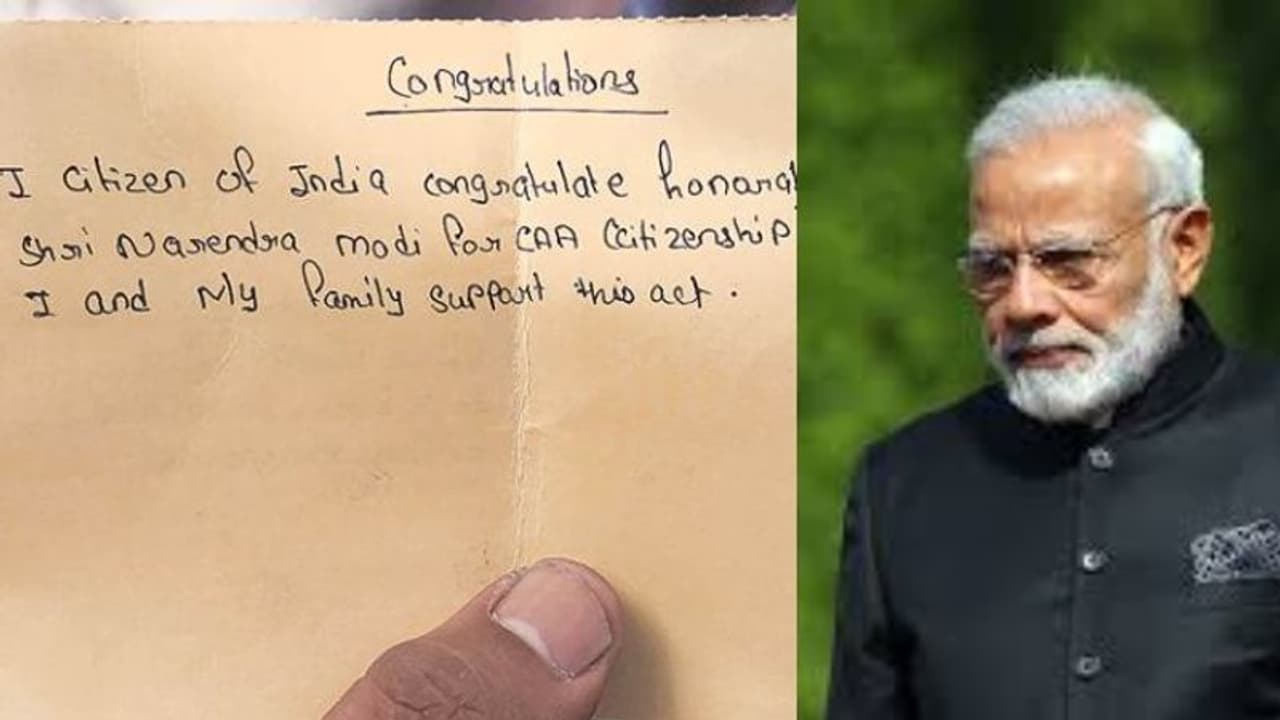 Congratulations
I citizen of India congratulate
Shri Narendra modi for CAA (Citizenship
I and My family support this act.